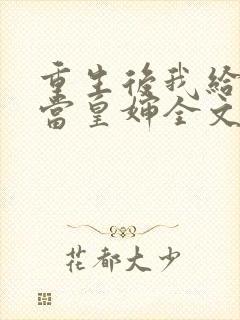 重生後我給
當皇婶全文
花都大少